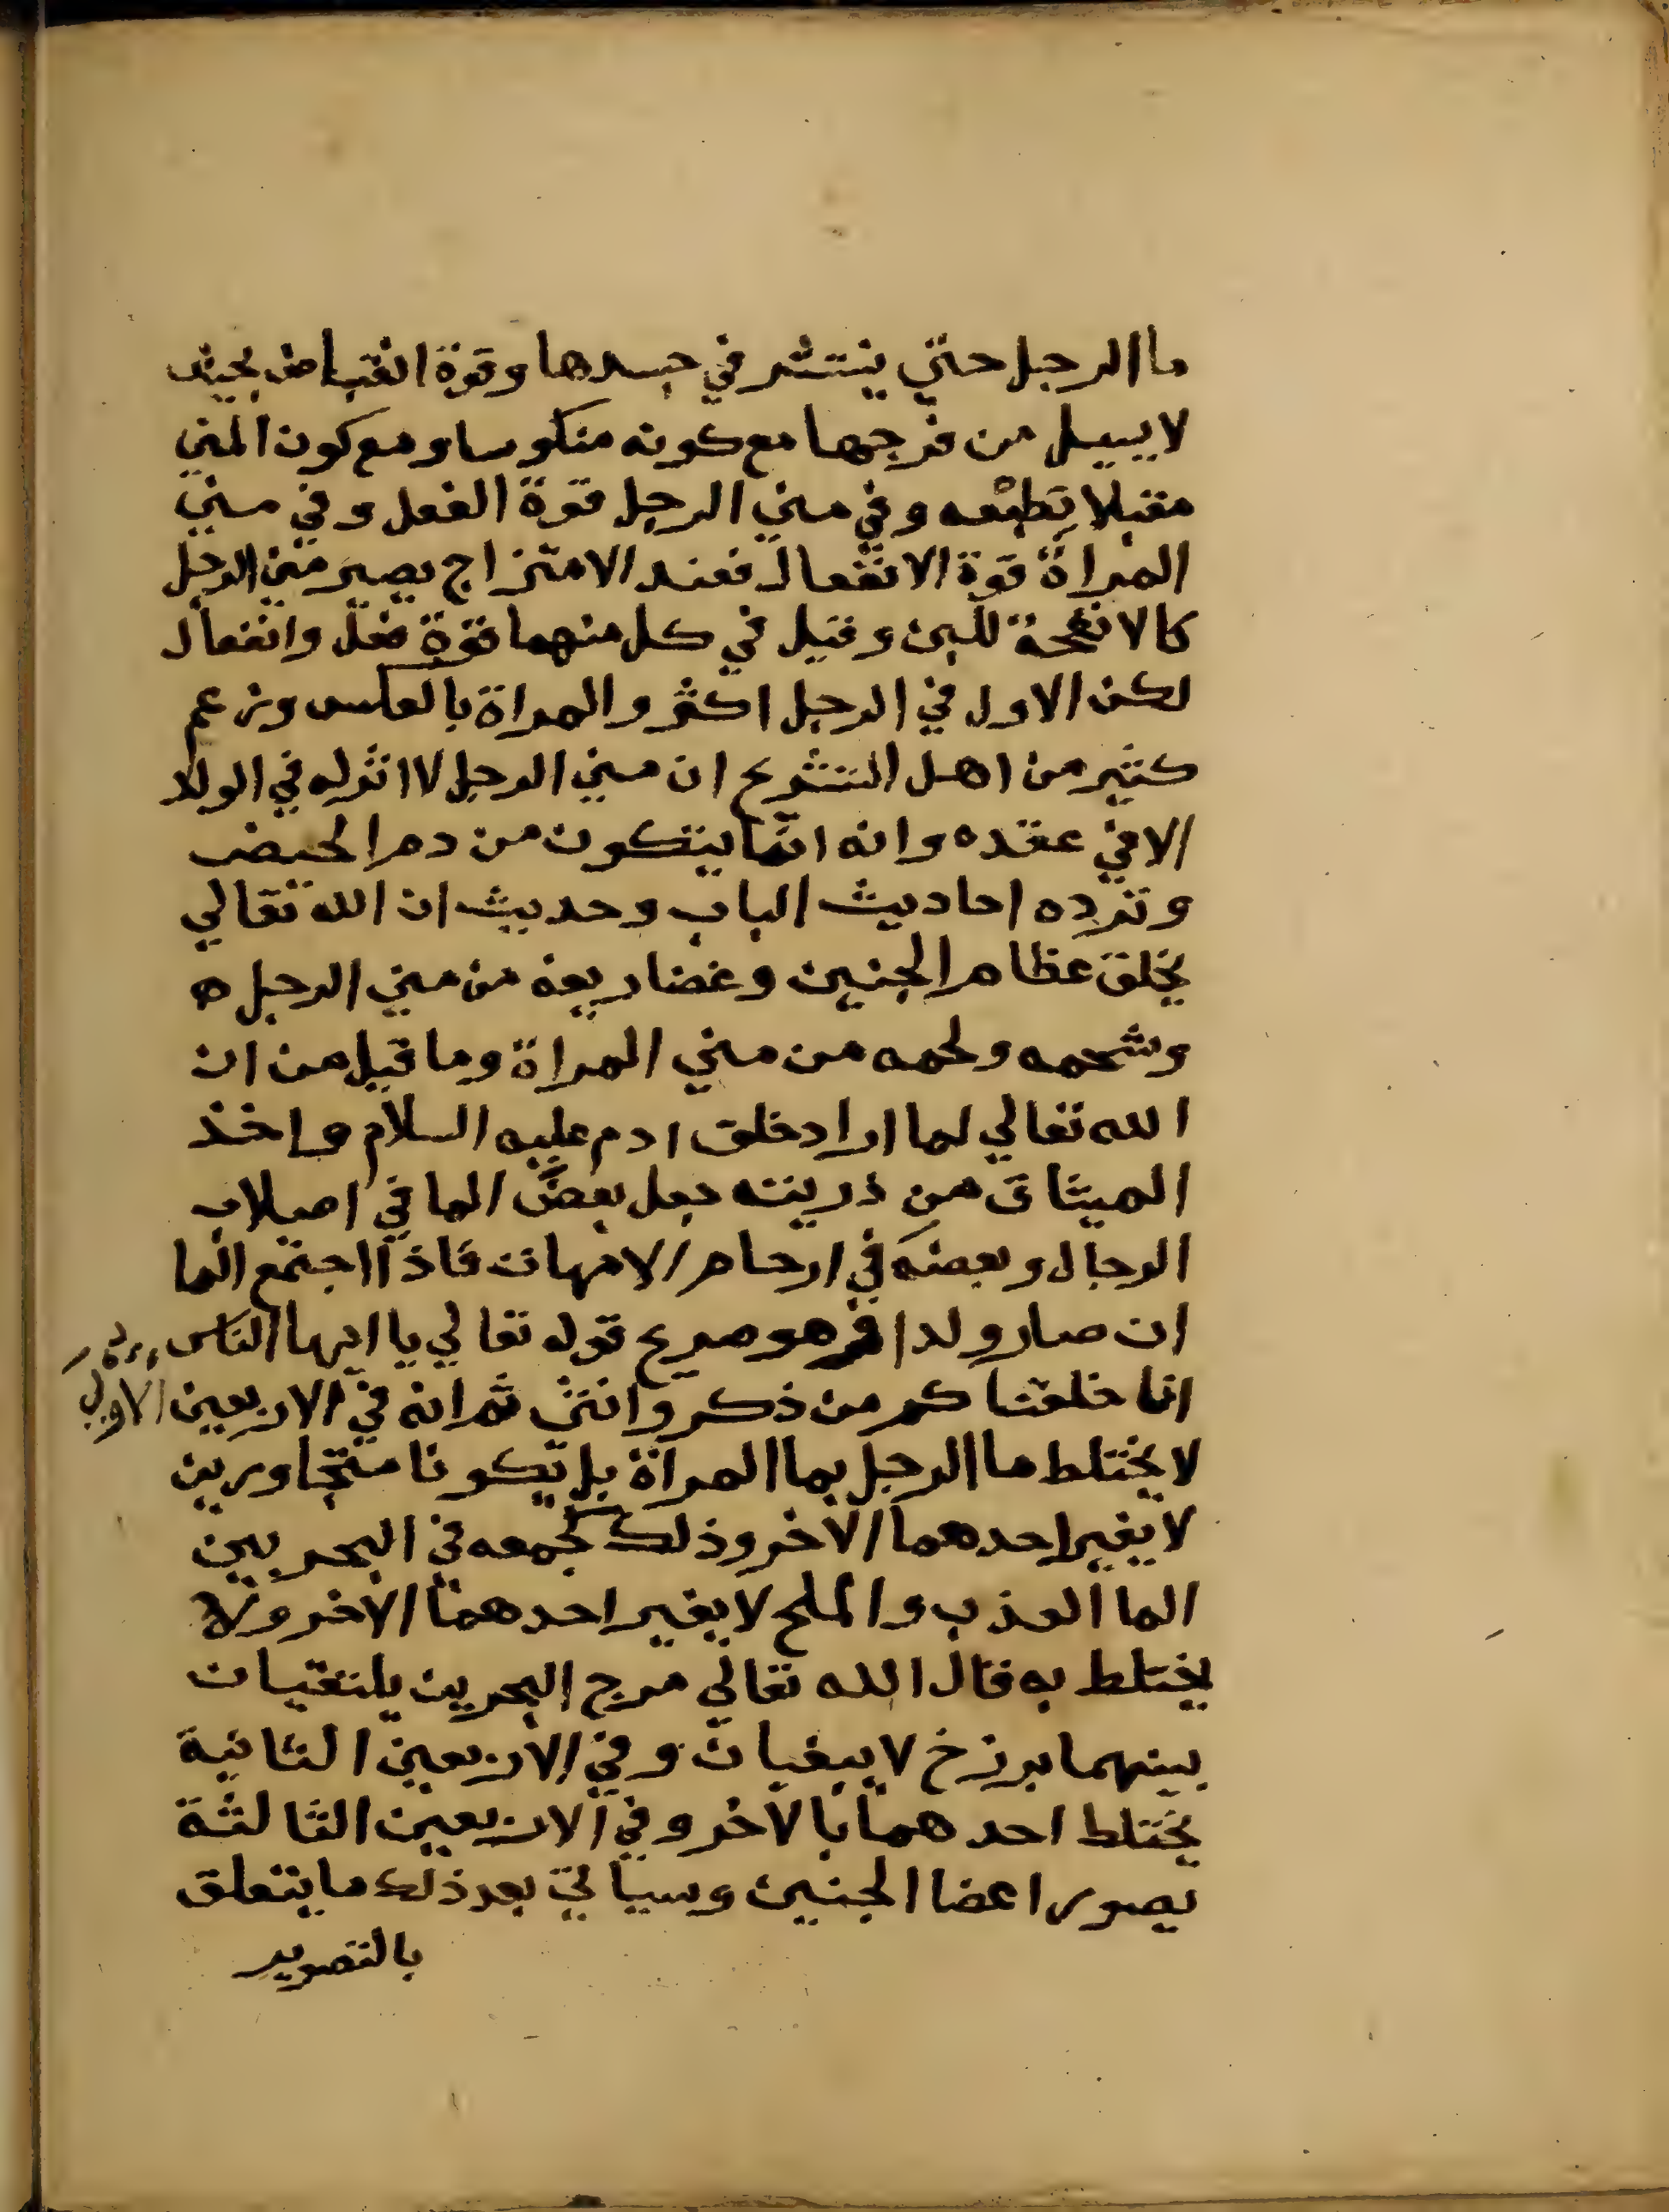 ما الرجل حتي ينتشر في جسدها وقوة انقباض بحيث
لا يسيل من فرجها مع كونه منكوسا ومع كون المني
مقتبلا بطبعه وفي مني الرجل قوة الفعل وفي مني
المراة قوة الانفعال فعند الامتزاج يصير مني الرجل
كالانفحة للبن وقيل في كل منهما قوة فعل وانفعال
لكن الاول في الرجل اكثر والمراة بالعكس وزعم
كثير من اهل التشريح ان مني الرجل لا اثر له في الولد
الا في عقده وانه انما يتكون من دم الحيض
وترده احاديث الباب وحديث ان الله تعالي
يخلق عظام الجنين وغضاريفه من مني الرجل ه
وشحمه ولحمه من مني المراة وما قيل من ان
الله تعالي لما اراد خلق ادم عليه السلام واخذ
الميثاق من ذريته جعل بعض الما في اصلاب
الرجال وبعضه في ارحام الامهات فاذا اجتمع الما
ان صار ولدا فهو صريح قوله تعالي يا ايها الناس
انا خلقناكم من ذكر وانثي ثم انه في الاربعين الاولي
لا يختلط ما الرجل بما المراة بل يكونا متجاورين
لا يغير احدهما الاخر وذلك كجمعه في البحر بين
الما العذب والملح لا يغير احدهما الاخر ولا
يختلط به قال الله تعالي مرج البحرين يلتقيان
بينهما برزخ لا يبغيان وفي الاربعين الثانية
يختلط احدهما بالاخر وفي الاربعين الثالثة
يصور اعضا الجنين وسياتي بعد ذلك ما يتعلق
بالتصوير